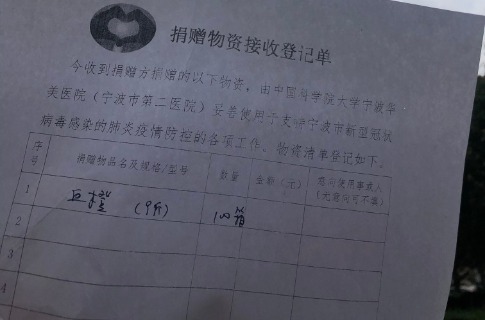 捐赠物资接收登记单
今收到捐赠方捐赠的以下物资，由中国科学院大学宁波华
美医院（宁波市第二医院）妥善使用于支持宁波市新型冠状
病毒感染的肺炎疫情防控的各项工作。物资清单登记如下。
序号 捐赠物品名及规格/型号 数量 金额（元） 意向使用事或人（无意向可不填）
1 (9斤) 100箱
2
3
4